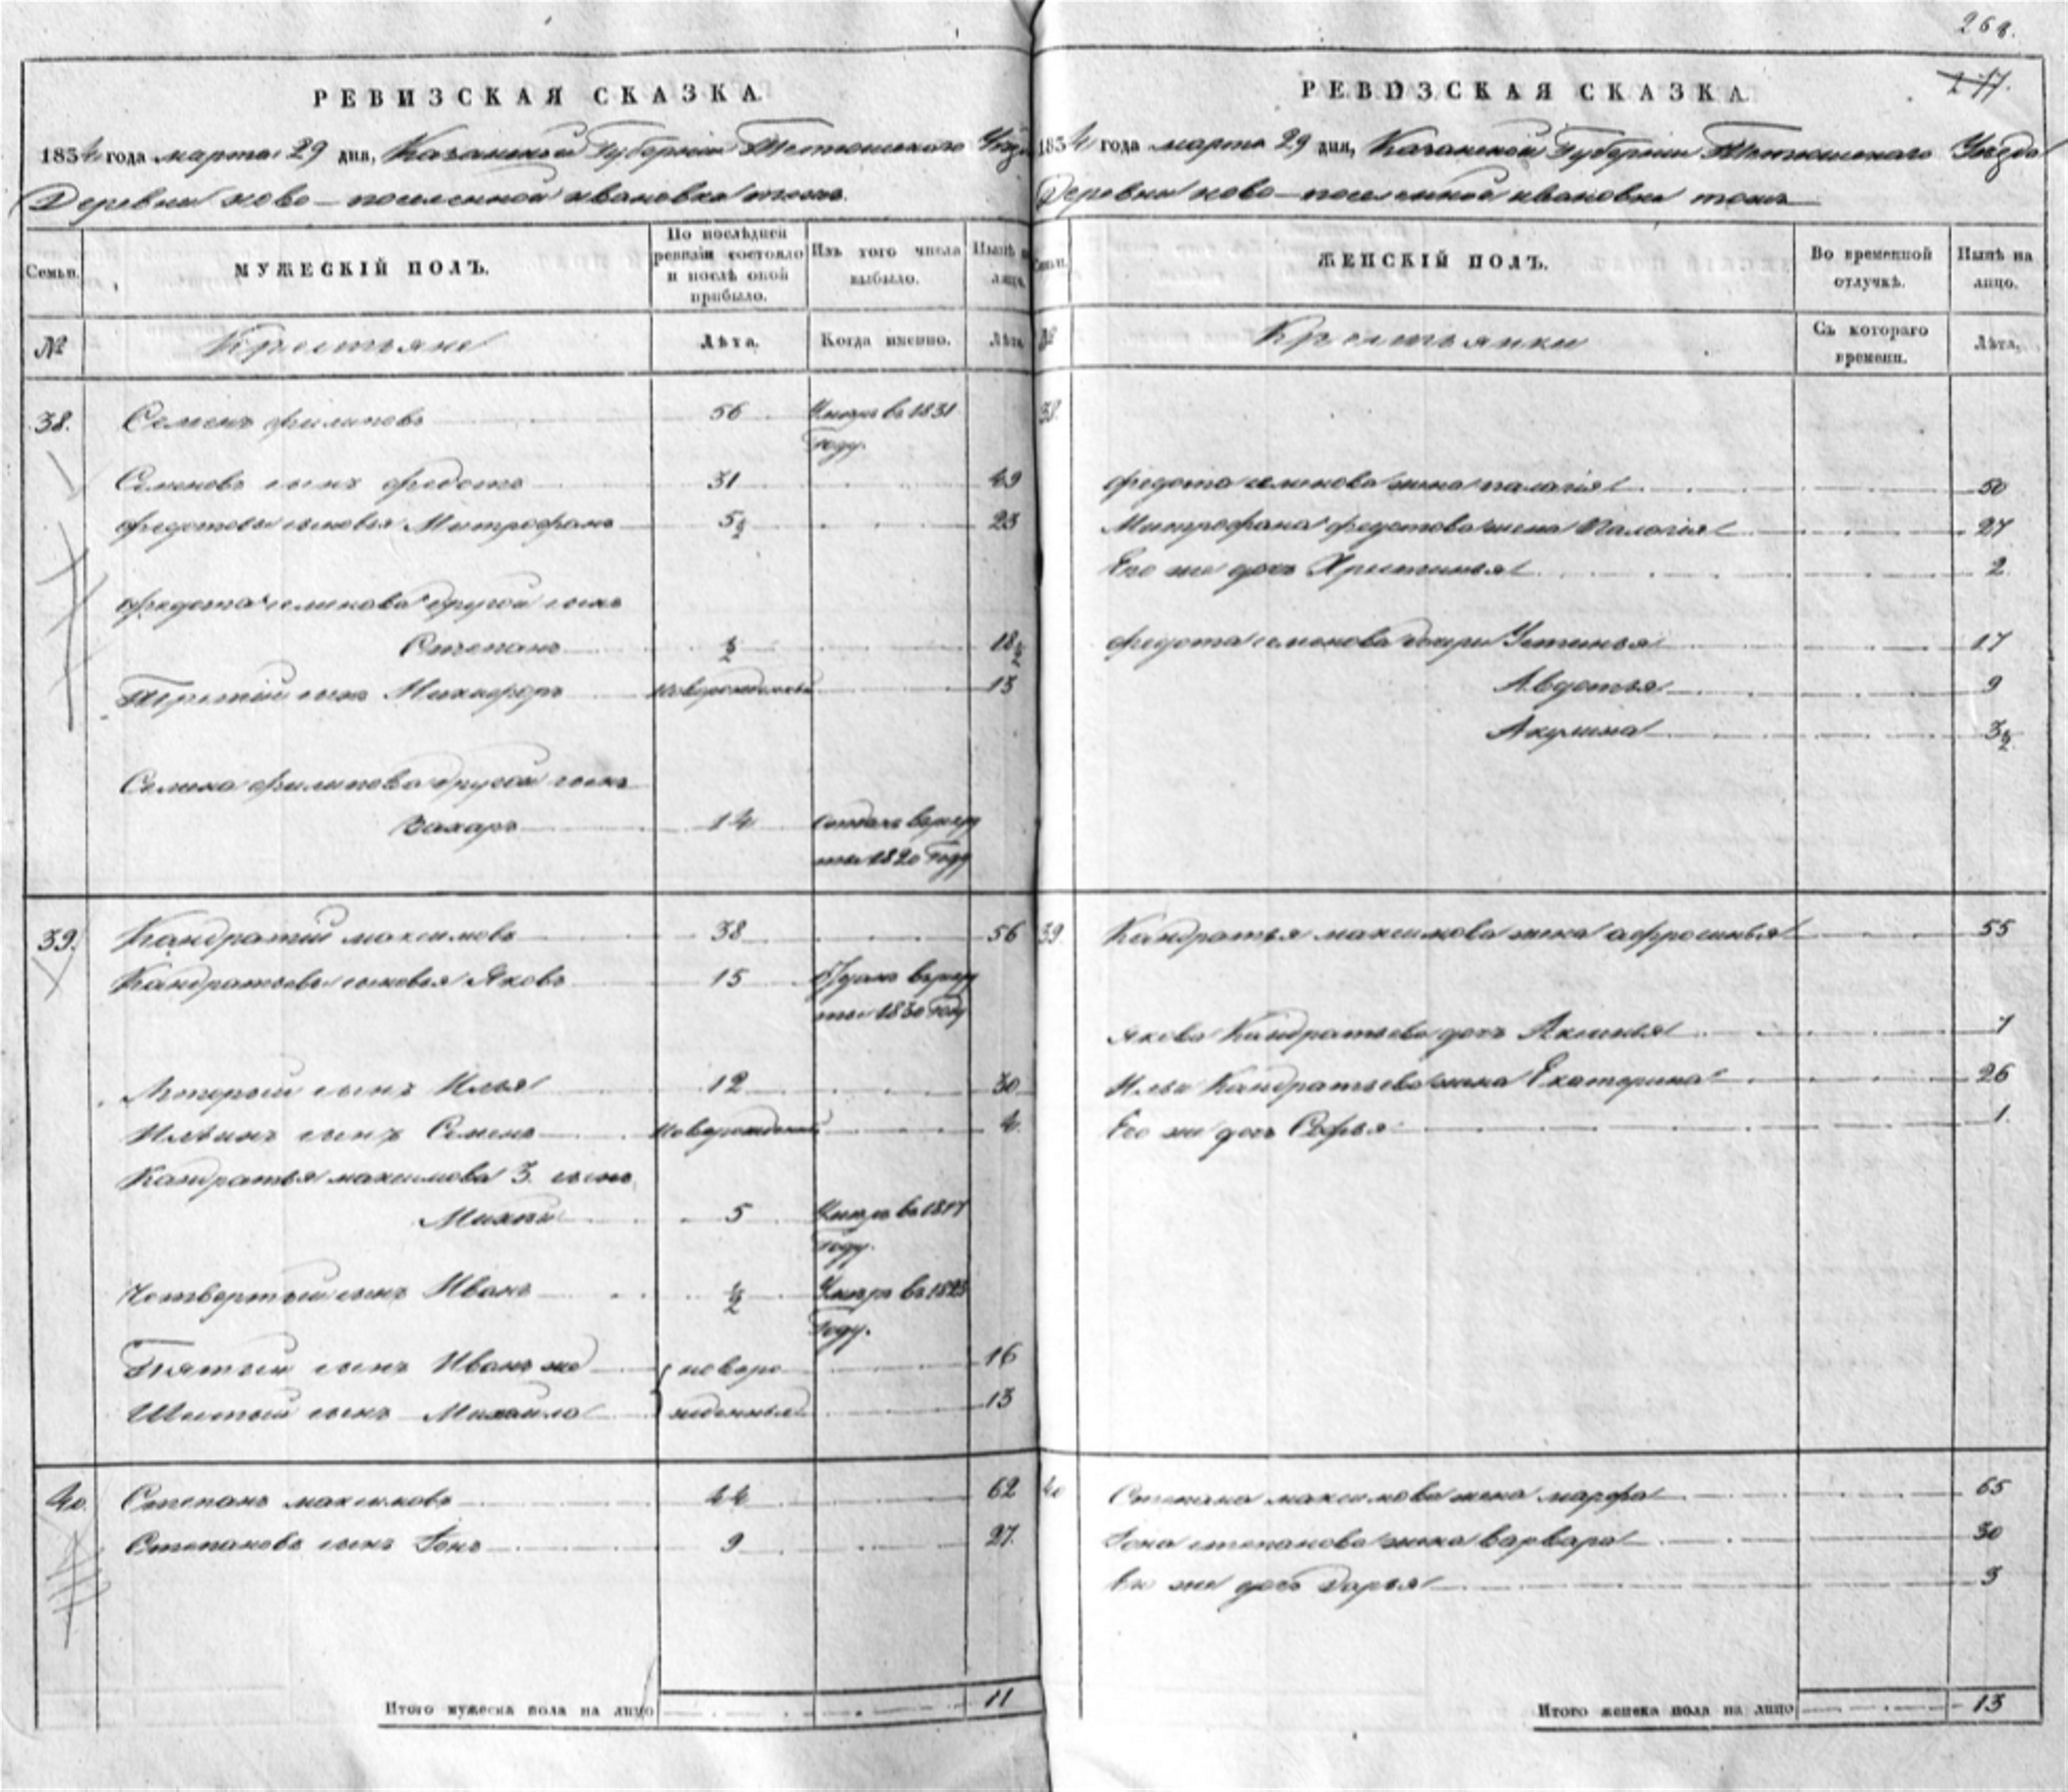 268.
277.
РЕВИЗСКАЯ СКАЗКА.
1834 года марта 29 дня, Казанской Губернии Тетюшского Уезда
Деревни ново-поселенной ивановка тожъ
Семьи.
МУЖЕСКІЙ ПОЛЪ.
По послѣдней ревизіи состояло и послѣ оной прибыло.
Изъ того числа выбыло.
Нынѣ на лицо.
№
Крестьяне
Лѣта.
Когда именно.
Лѣта.
38. Семенъ филиповъ 56 Умеръ въ 1831
году.
Семеновъ сынъ федотъ 31 49
федотовы сыновья Митрофанъ 5½ 23
федота семенова другой сынъ
Степанъ ½ 18½
Третій сынъ Никифоръ Новорожденный 13
Семена филипова другой сынъ
Захаръ 14 отданъ врекру
ты 1820 году
39. Кандратій максимовъ 38 56
Кандратьевы сыновья Яковъ 15 отданъ врекру
ты 1830 году
Второй сынъ Илья 12 30
Ильинъ сынъ Семенъ Новорожденный 4
Кандратья максимова 3. сынъ
Михей 5 Умеръ въ 1817
году.
Четвертый сынъ Иванъ ½ Умеръ въ 1823
году.
Пятый сынъ Иванъ же новоро 16
Шестый сынъ Михайла жденныя 13
40. Степанъ максимовъ 44 62
Степановъ сынъ Іонъ 9 27.
Итого мужеска пола на лицо 11
РЕВИЗСКАЯ СКАЗКА.
1834 года марта 29 дня, Казанской Губернии Тетюшского Уезда
Деревни ново-поселенной ивановки тожъ
Семьи.
ЖЕНСКІЙ ПОЛЪ.
Во временной отлучкѣ.
Нынѣ на лицо.
№
Крестьянки
Съ котораго времени.
Лѣта.
38.
федота семенова жена палагія 50
Митрофана федотова жена Палагія 27
Его же дочь Христинья 2
федота семенова дочери Устинья 17
Авдотья 9
Акулина 3½
39 Кандратья максимова жена афросинья 55
Якова Кандратьева дочь Аксинья 7
Ильи Кандратьева жена Екатерина 26
Его же дочь Софья 1.
40 Степана максимова жена марфа 65
Іона степанова жена варвара 30
Его же дочь дарья 3
Итого женска пола на лицо 13